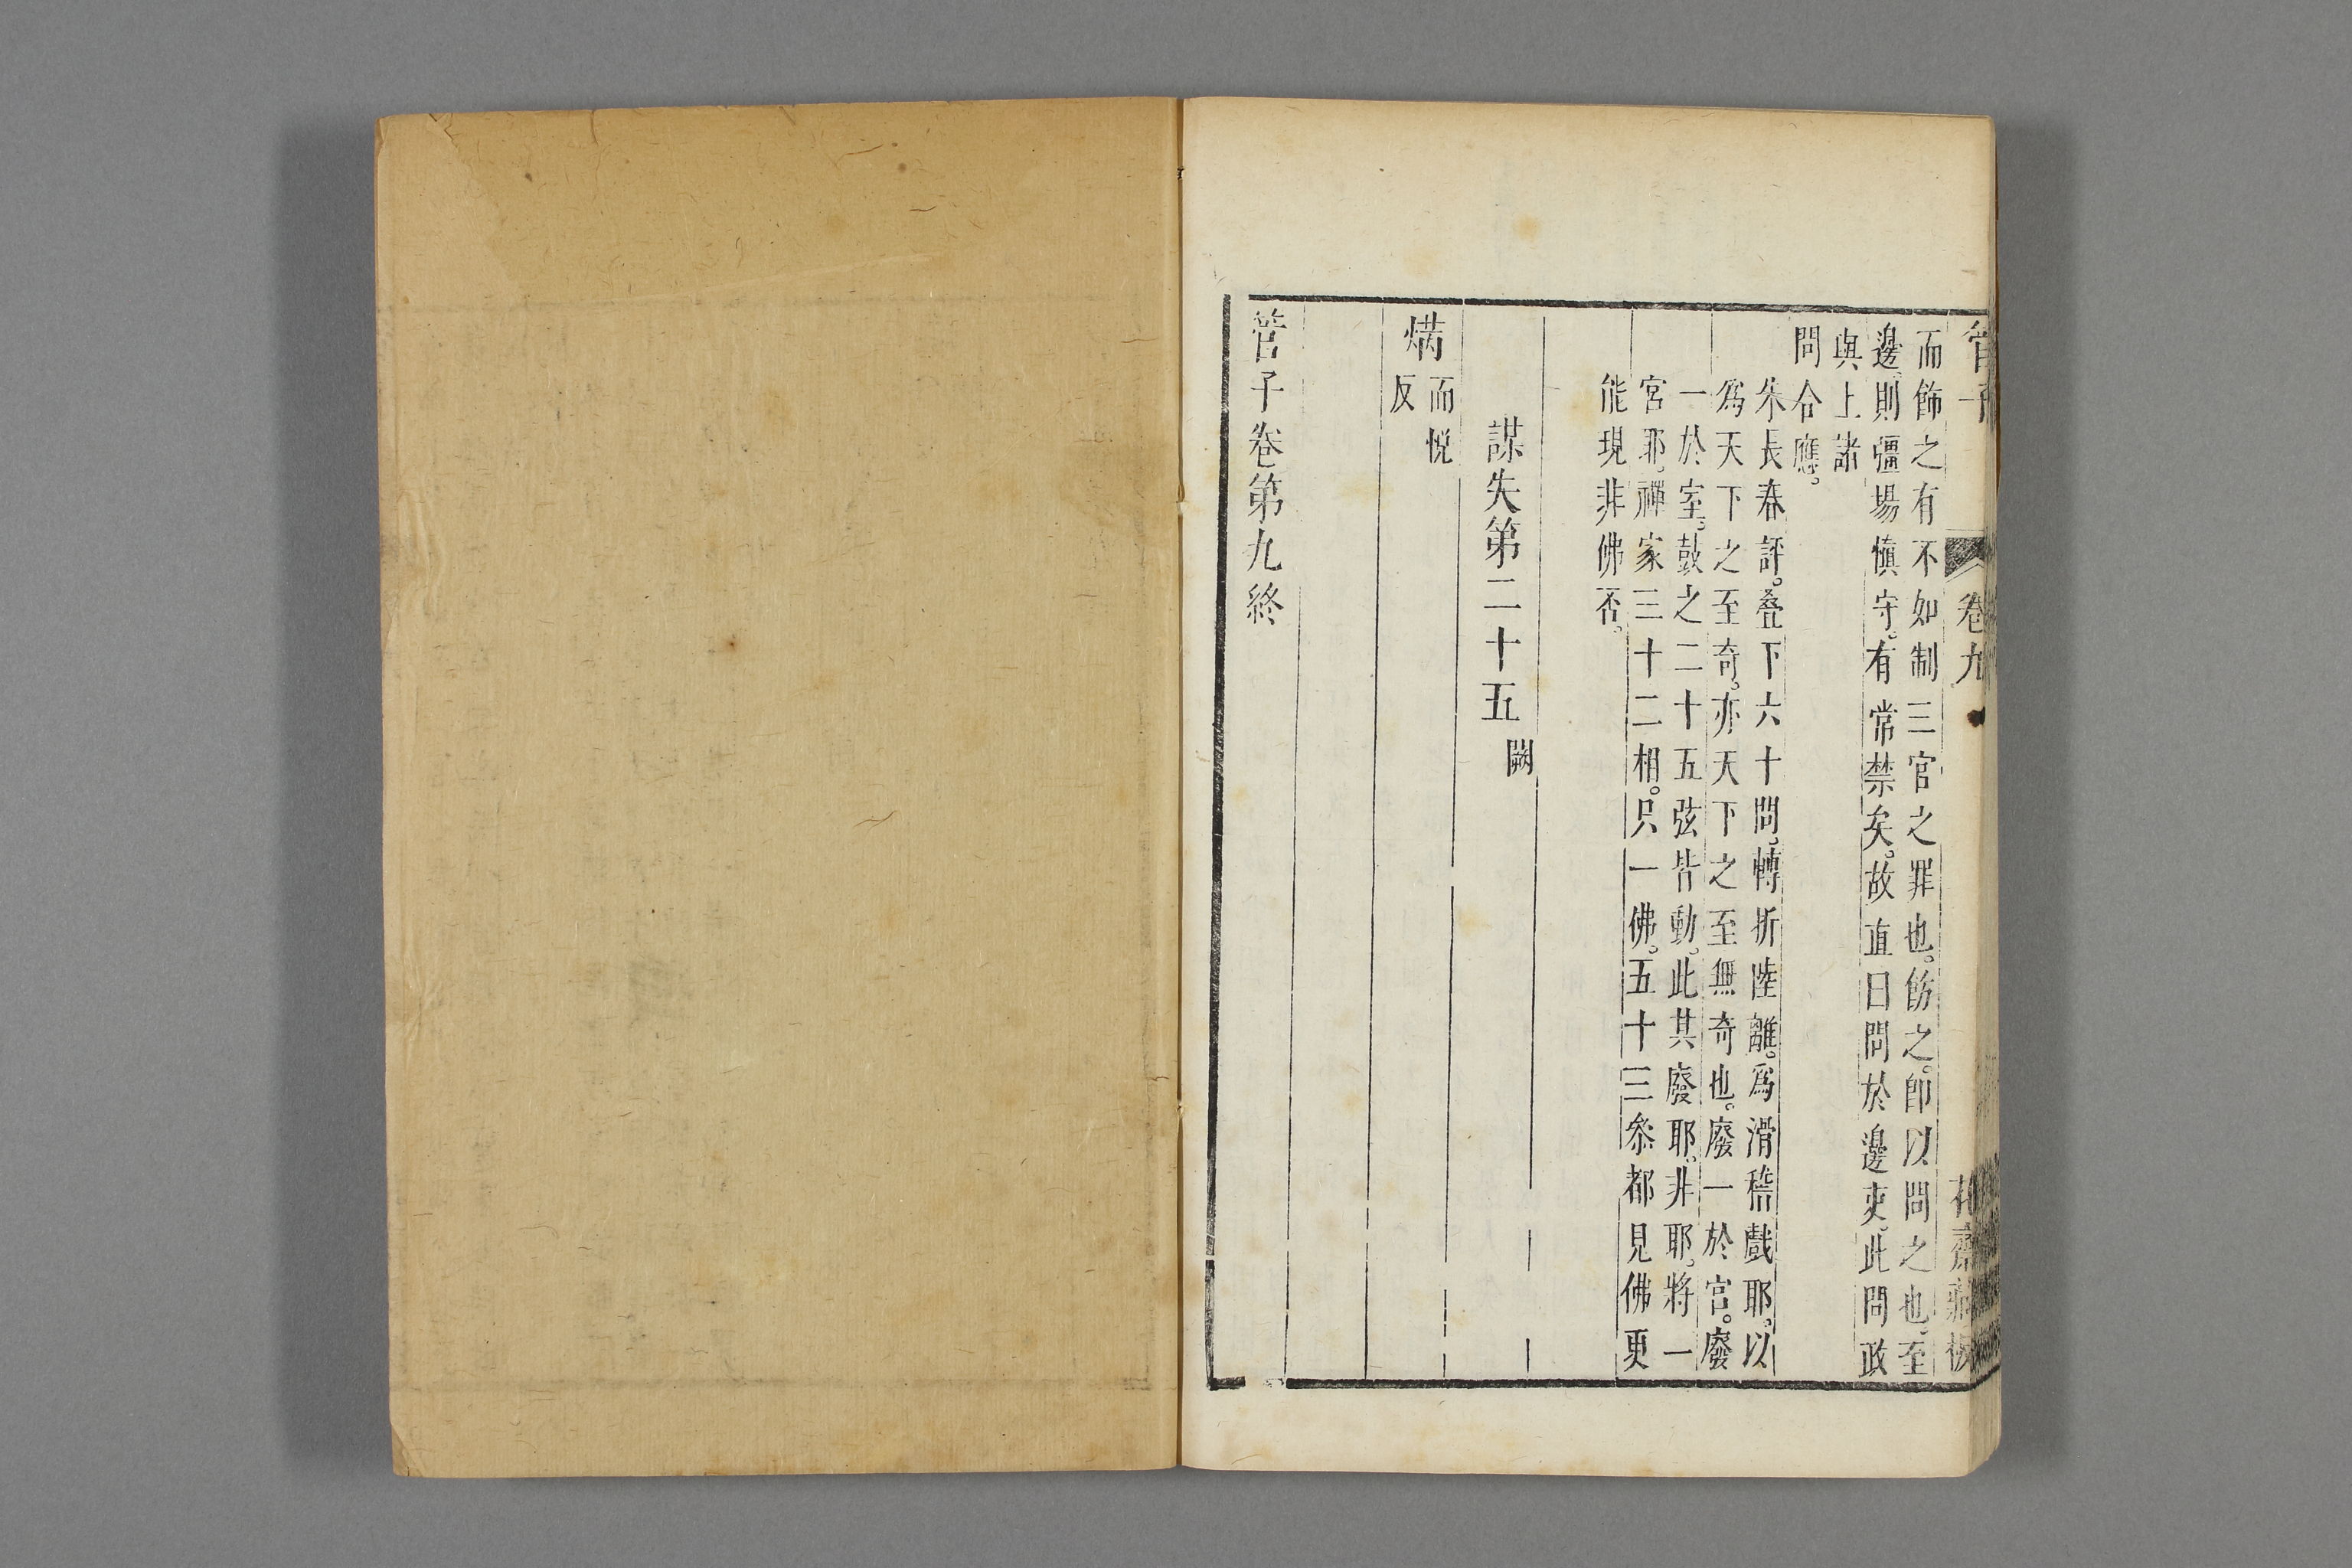 管子
卷九
花齋藏板
而飾之有不如制三官之罪也。飭之。卽以問之也。至
邊。則疆場慎守。有常禁矣。故直曰問於邊吏。此問政
與上諸
問合應。
朱長春評。叠下六十問。轉折陸離。爲滑稽戲耶。以
爲天下之至奇。亦天下之至無奇也。廢一於官。廢
一於室。鼓之二十五弦皆動。此其廢耶。非耶。將一
宮耶。禪家三十二相。只一佛。五十三叅都見佛更
能現非佛否。
謀失第二十五 闕
㶧 而悅
反
管子卷第九終